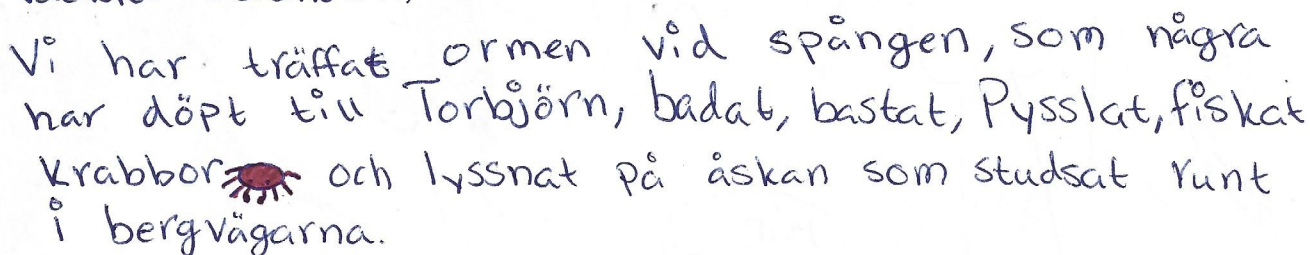 Vi har träffat ormen vid spången, som några
har döpt till Torbjörn, badat, bastat, Pysslat, fiskat
krabbor och lyssnat på åskan som studsat runt
i bergvägarna.